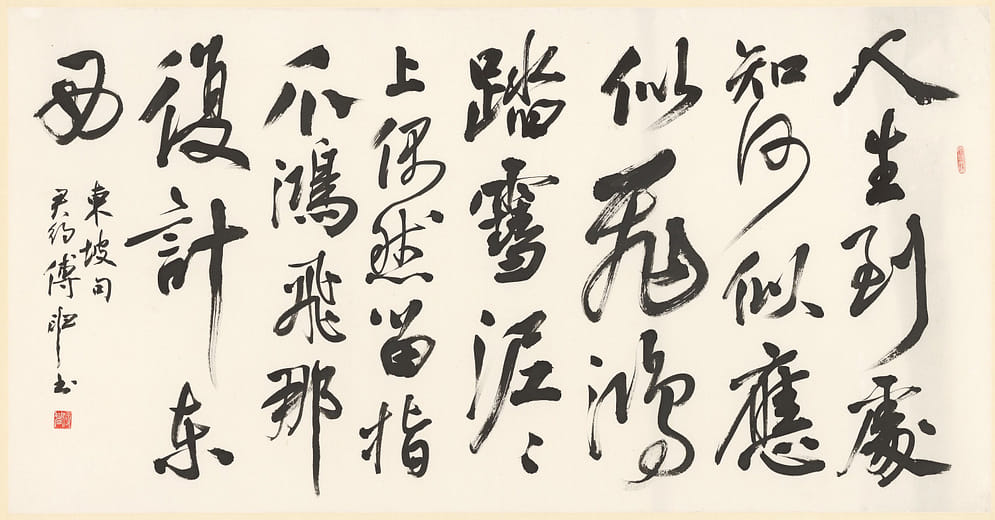 人生到處
知何似應
似飛鴻
踏雪泥〻
上偶然留指
爪鴻飛那
復計东
西
東坡句
尹約傅申书